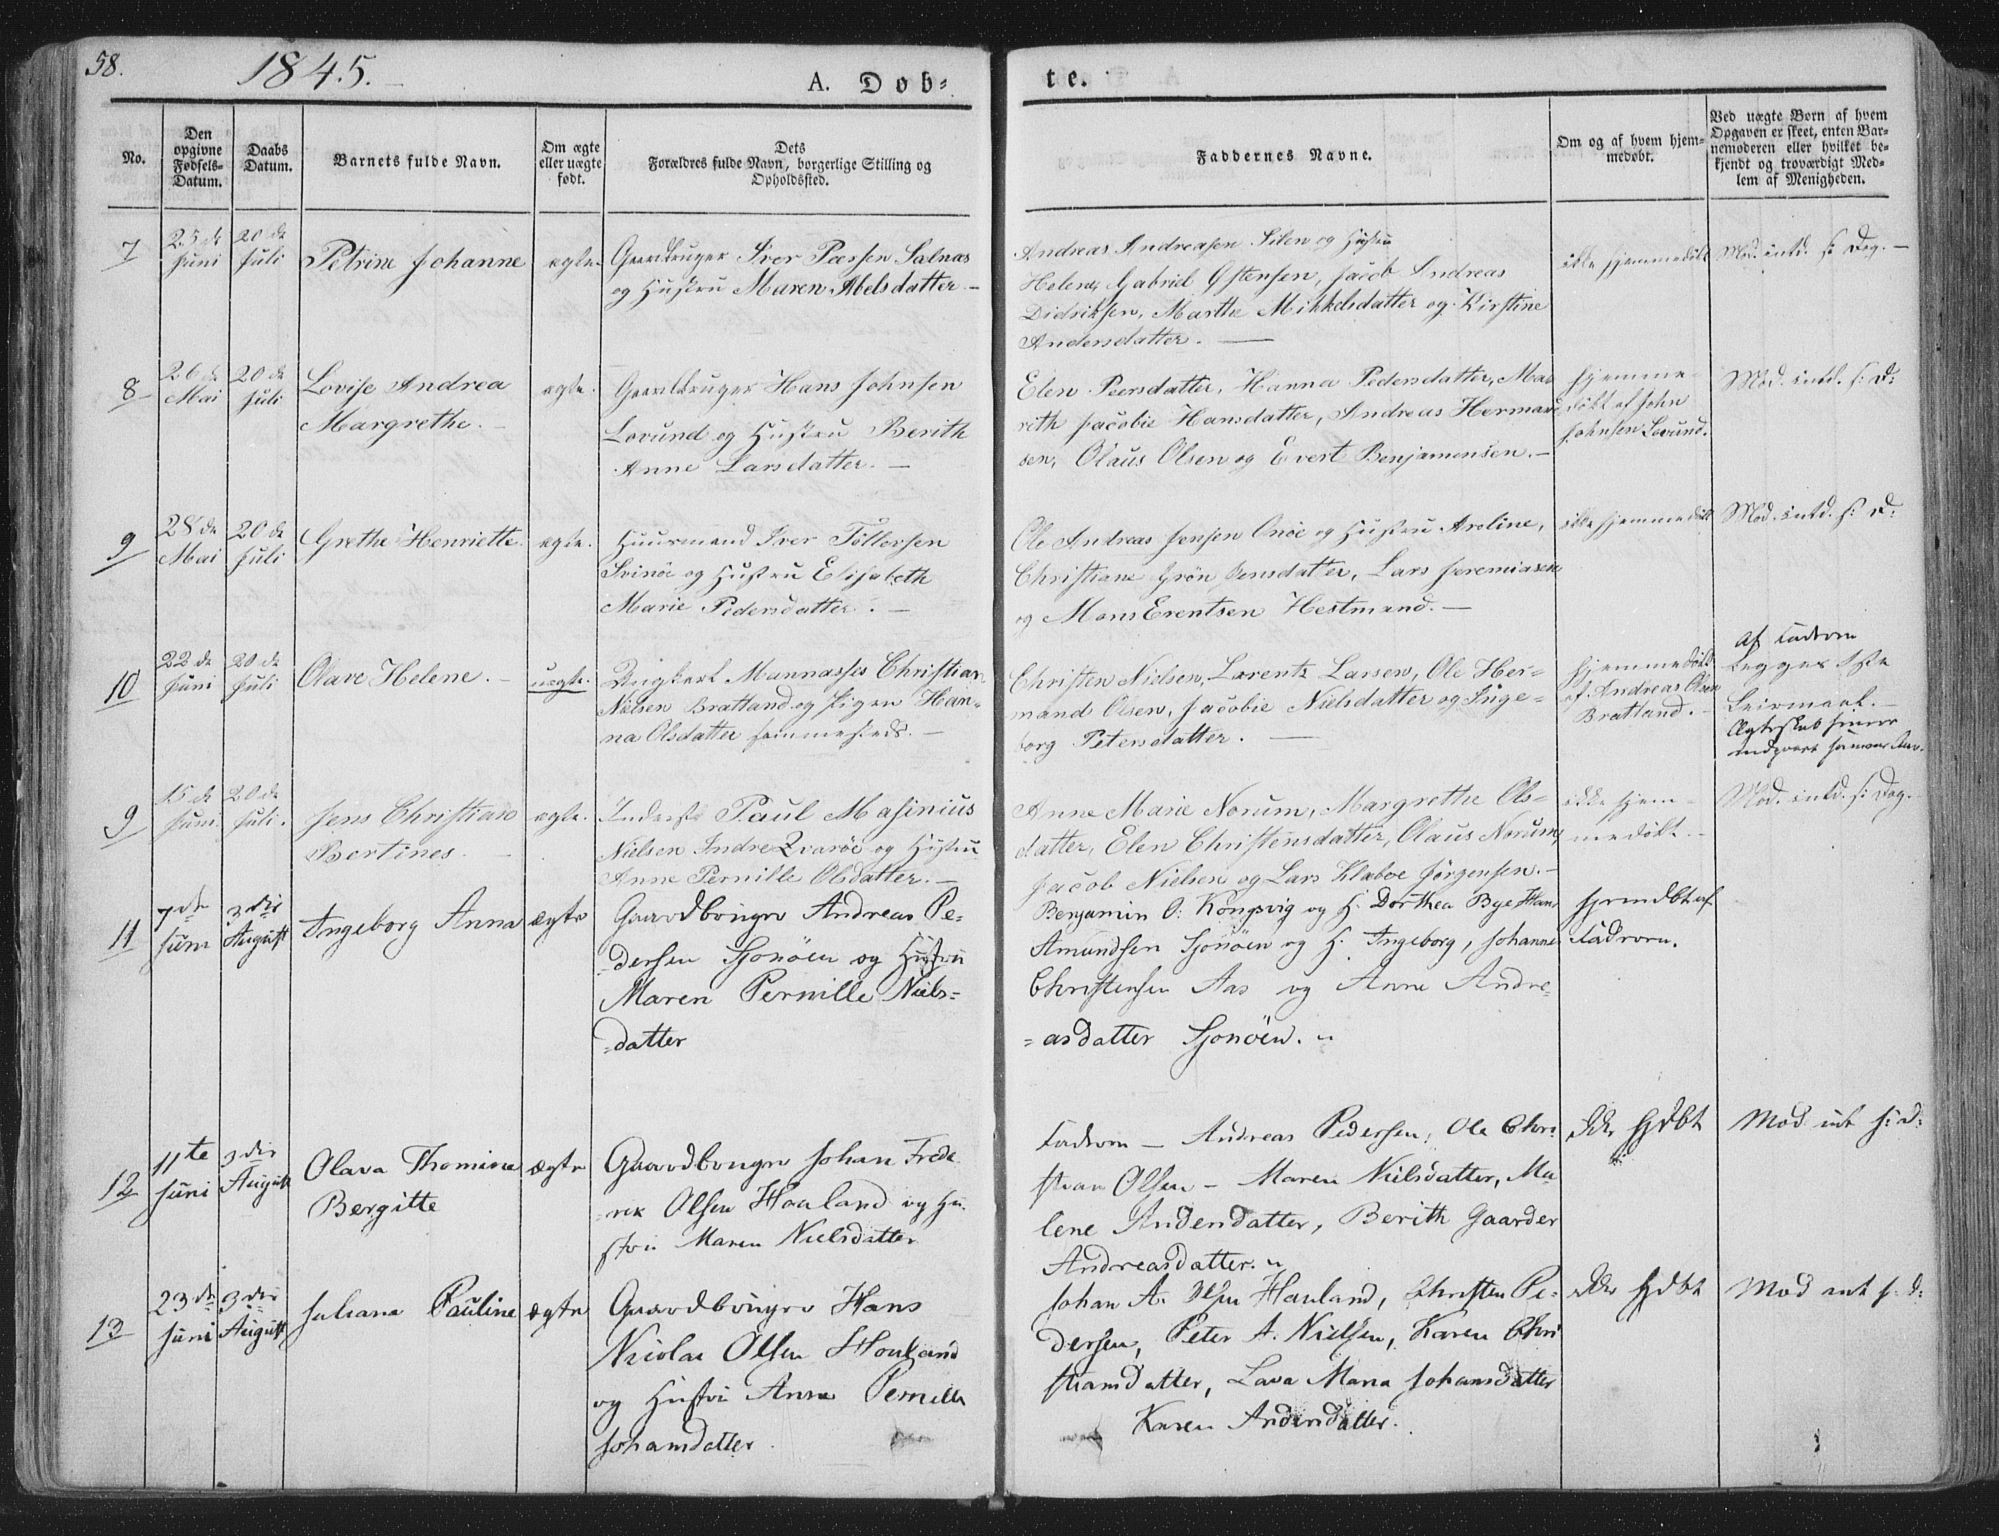 58.
1845.
A. Døb-
te.
No.
Den opgivne Fødsels-Datum.
Daabs Datum.
Barnets fulde Navn.
Om ægte eller uægte født.
Dets Forældres fulde Navn, borgerlige Stilling og Opholdssted.
Faddernes Navne.
Om og af hvem hjemmedøbt.
Ved uægte Børn af hvem Opgaven er skeet, enten Barnemoderen eller hvilket bekjendt og troværdigt Medlem af Menigheden.
7
25 de Juni
20 de Juli
Petrine Johanne
ægte.
Gaardbruger Iver Pæssen Salnæs
og Hustru Maren Abelsdatter.
Andreas Andreasen Selen og Hustru
Helene, Gabriel Østensen, Jacob Andreas
Didriksen, Marthe Mikkelsdatter og Kirstine
Andersdatter.
ikke hjemmedøbt
Mod. intd. s: Dag.
8
26 de Mai
20 de Juli
Lovise Andrea
Margrethe.
ægte.
Gaardbruger Hans Johnsen
Lovund og Hustru Berith
Anne Larsdatter.
Elen Peersdatter, Hanna Pedersdatter, Ma-
reth Jacobie Hansdatter, Andreas Herman-
sen, Olaus Olsen og Evert Benjamensen.
hjemme-
døbt af John
Johnsen Lovund.
Mod. intd. s: D:
9
28 de Mai
20 de Juli
Grethe Henriette
ægte.
Huusmand Iver Tollersen
Svinöe og Hustru Elisabeth
Marie Pedersdatter.
Ole Andreas Jensen Onöe og Hustru Axeline,
Christiane Grön Jensdatter, Lars Jeremiasen
og Mons Erentsen Hestmand.
ikke hjemmedøbt
Mod. intd. s: D:
10
22 de Juni
20 de Juli
Olave Helene.
uægte.
Ungkarl Mannasses Christian
Nielsen Bratland og Pigen Han-
na Olsdatter sammesteds.
Christen Nielsen, Lorentz Larsen, Ole Her-
mand Olsen, Jacobie Nielsdatter og Inge-
borg Petersdatter.
hjemmedøbt
af Andreas Olsen
Bratland.
Af Fadren
Begges 1ste
Leiermaal.
9
15 de Juni
20 de Juli.
Jens Christian
Bertines.
ægte.
Inderst Paul Masinius
Nielsen Indre Qvaröe og Hustru
Anne Pernille Olsdatter.
Anne Marie Norum, Margrethe Ols-
datter, Elen Christensdatter, Olaus Norum,
Jacob Nielsen og Lars Klaboe Jörgensen.
ikke hjem-
medøbt.
Mod. intd. s: Dag.
11
7de Juni
3die August
Ingeborg Anna
ægte
Gaardbruger Andreas Pe-
dersen Sjonöen og Hustru
Maren Pernille Niels-
datter
Benjamin O: Kongsvig og H. Dorthea Bye Hans
Amundsen Sjonöen og H. Ingeborg, Johanne
Christensen Aas og Anne Andre-
asdatter Sjonöen.
hjemdbt af
Fadren.
12
11te Juni
3die August
Olava Thomine
Bergitte
ægte
Gaardbruger Johan Frede-
rik Olsen Houland og Hu-
stru Maren Nielsdatter
Fadren - Andreas Pedersen, Ole Chri-
stian Olsen - Maren Nielsdatter, Ma-
lene Andersdatter, Berith Gaarder
Andreasdatter.
Ikke hjdbt
Mod int s: d:
13
23de Juni
3die August
Juliana Pauline
ægte
Gaardbruger Hans
Nicolai Olsen Houland
og Hustru Anne Pernille
Johansdatter
Johan A. Olsen Houland, Christen Pe-
dersen, Peter A. Nielsen, Karen Chri-
stiansdatter, Lava Maria Johansdatter
Karen Andersdatter.
Ikke hjdbt
Mod int s. d: